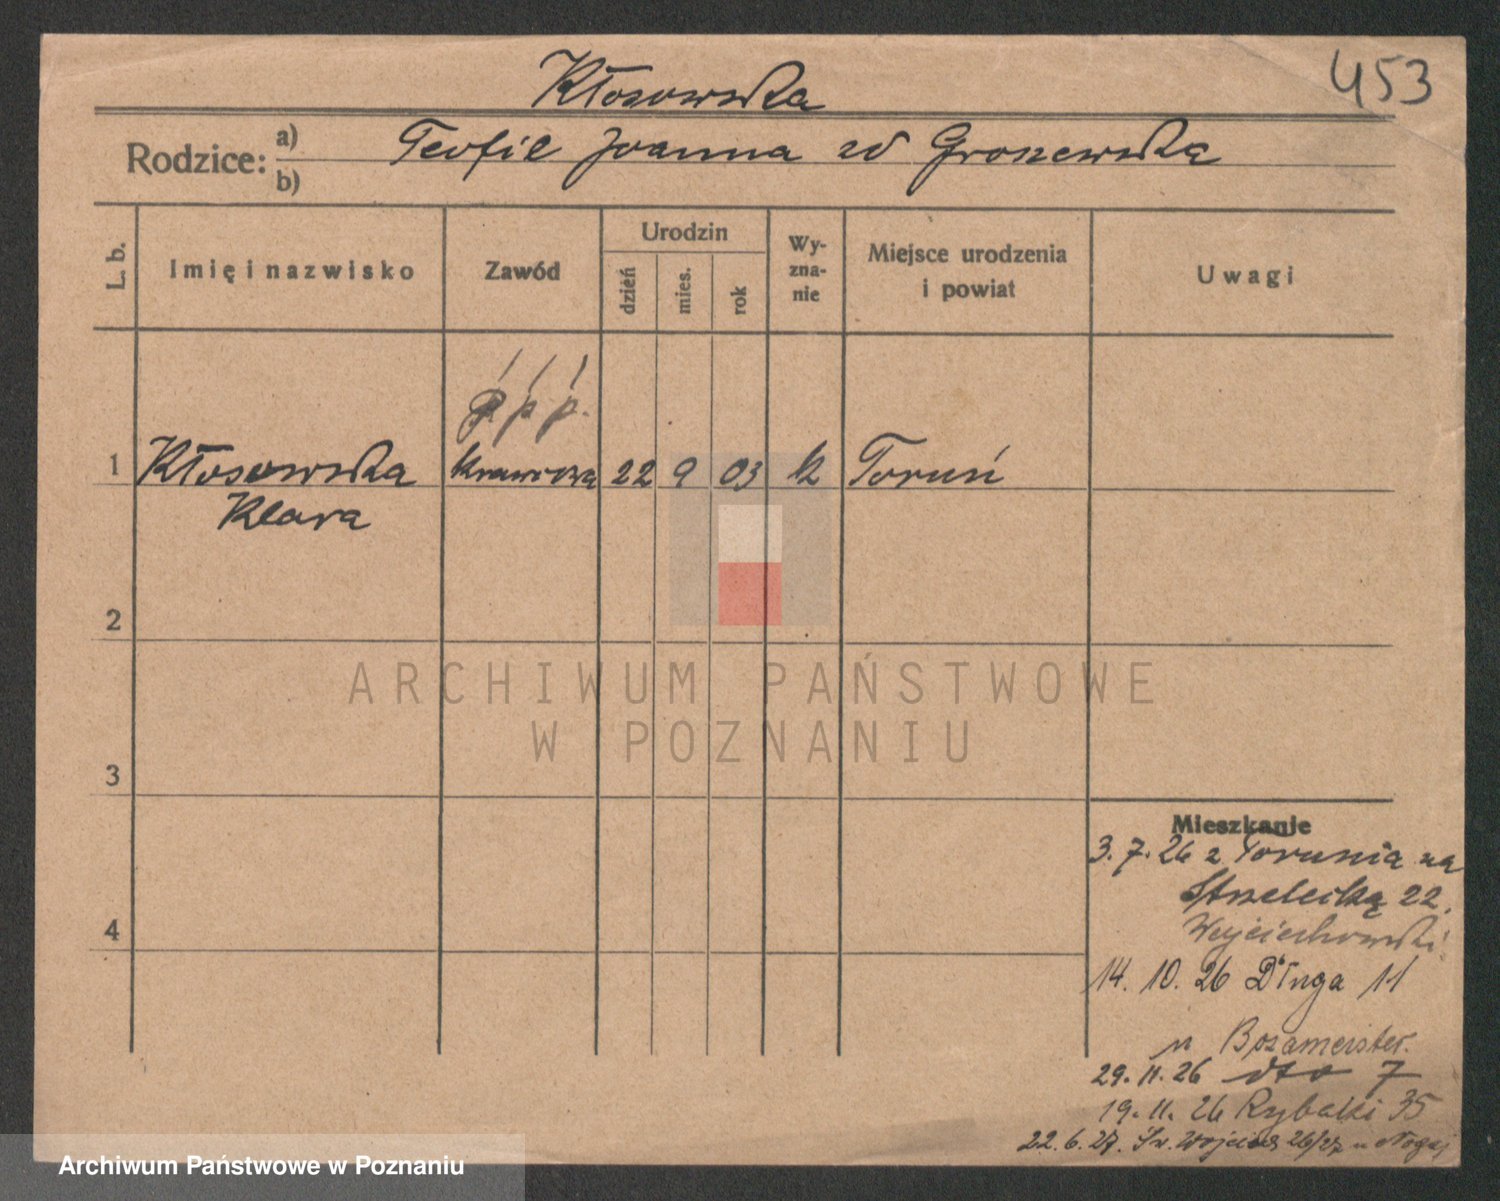 453
Kłosowska
Rodzice: a) Teofil Joanna zd Groszewska
b)
L. b. Imię i nazwisko Zawód Urodzin dzień mies. rok Wy-zna-nie Miejsce urodzenia i powiat Uwagi
p p p.
1 Kłosowska krawcowa 22 9 03 k Toruń
Klara
2
ARCHIWUM PAŃSTWOWE
W POZNANIU
3
Mieszkanie
3. 7. 26 z Torunia na
Strzelecką 22.
Wojciechowski
4
14. 10. 26 Długa 11
u
29. 11. 26 dto 7
19. 11. 26 Rybaki 35
22. 6. 27. Św. Wojciech 26/27 u Nogaj
Archiwum Państwowe w Poznaniu